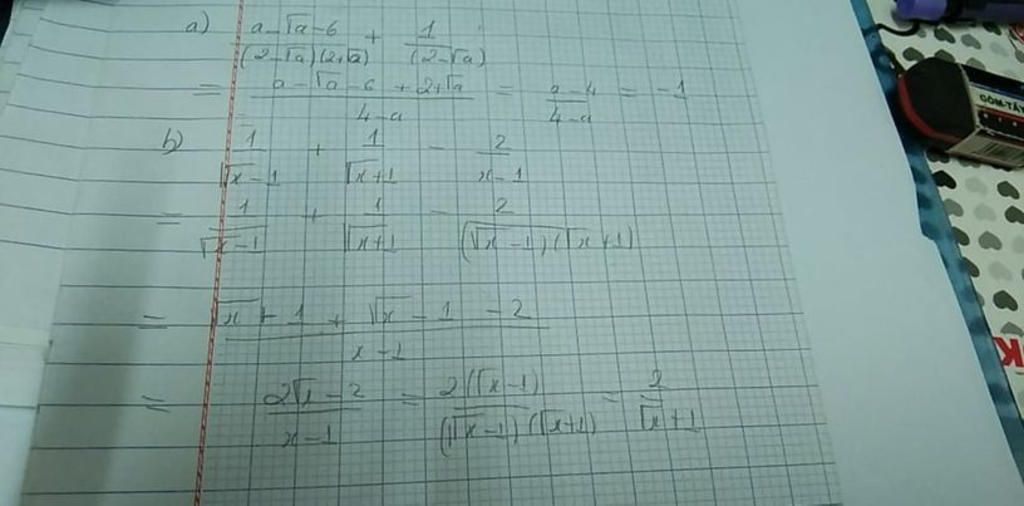 a) (a - √a - 6)/((2 - √a)(2 + √a)) + 1/(2 - √a)
= (a - √a - 6 + 2 + √a)/(4 - a) = (a - 4)/(4 - a) = -1
b) 1/(√x - 1) + 1/(√x + 1) - 2/(x - 1)
= 1/(√x - 1) + 1/(√x + 1) - 2/((√x - 1)(√x + 1))
= (√x + 1 + √x - 1 - 2)/(x - 1)
= (2√x - 2)/(x - 1) = 2(√x - 1)/((√x - 1)(√x + 1)) = 2/(√x + 1)